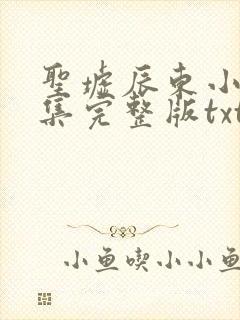 聖墟辰東小
集完整版txt
小鱼喫小小鱼